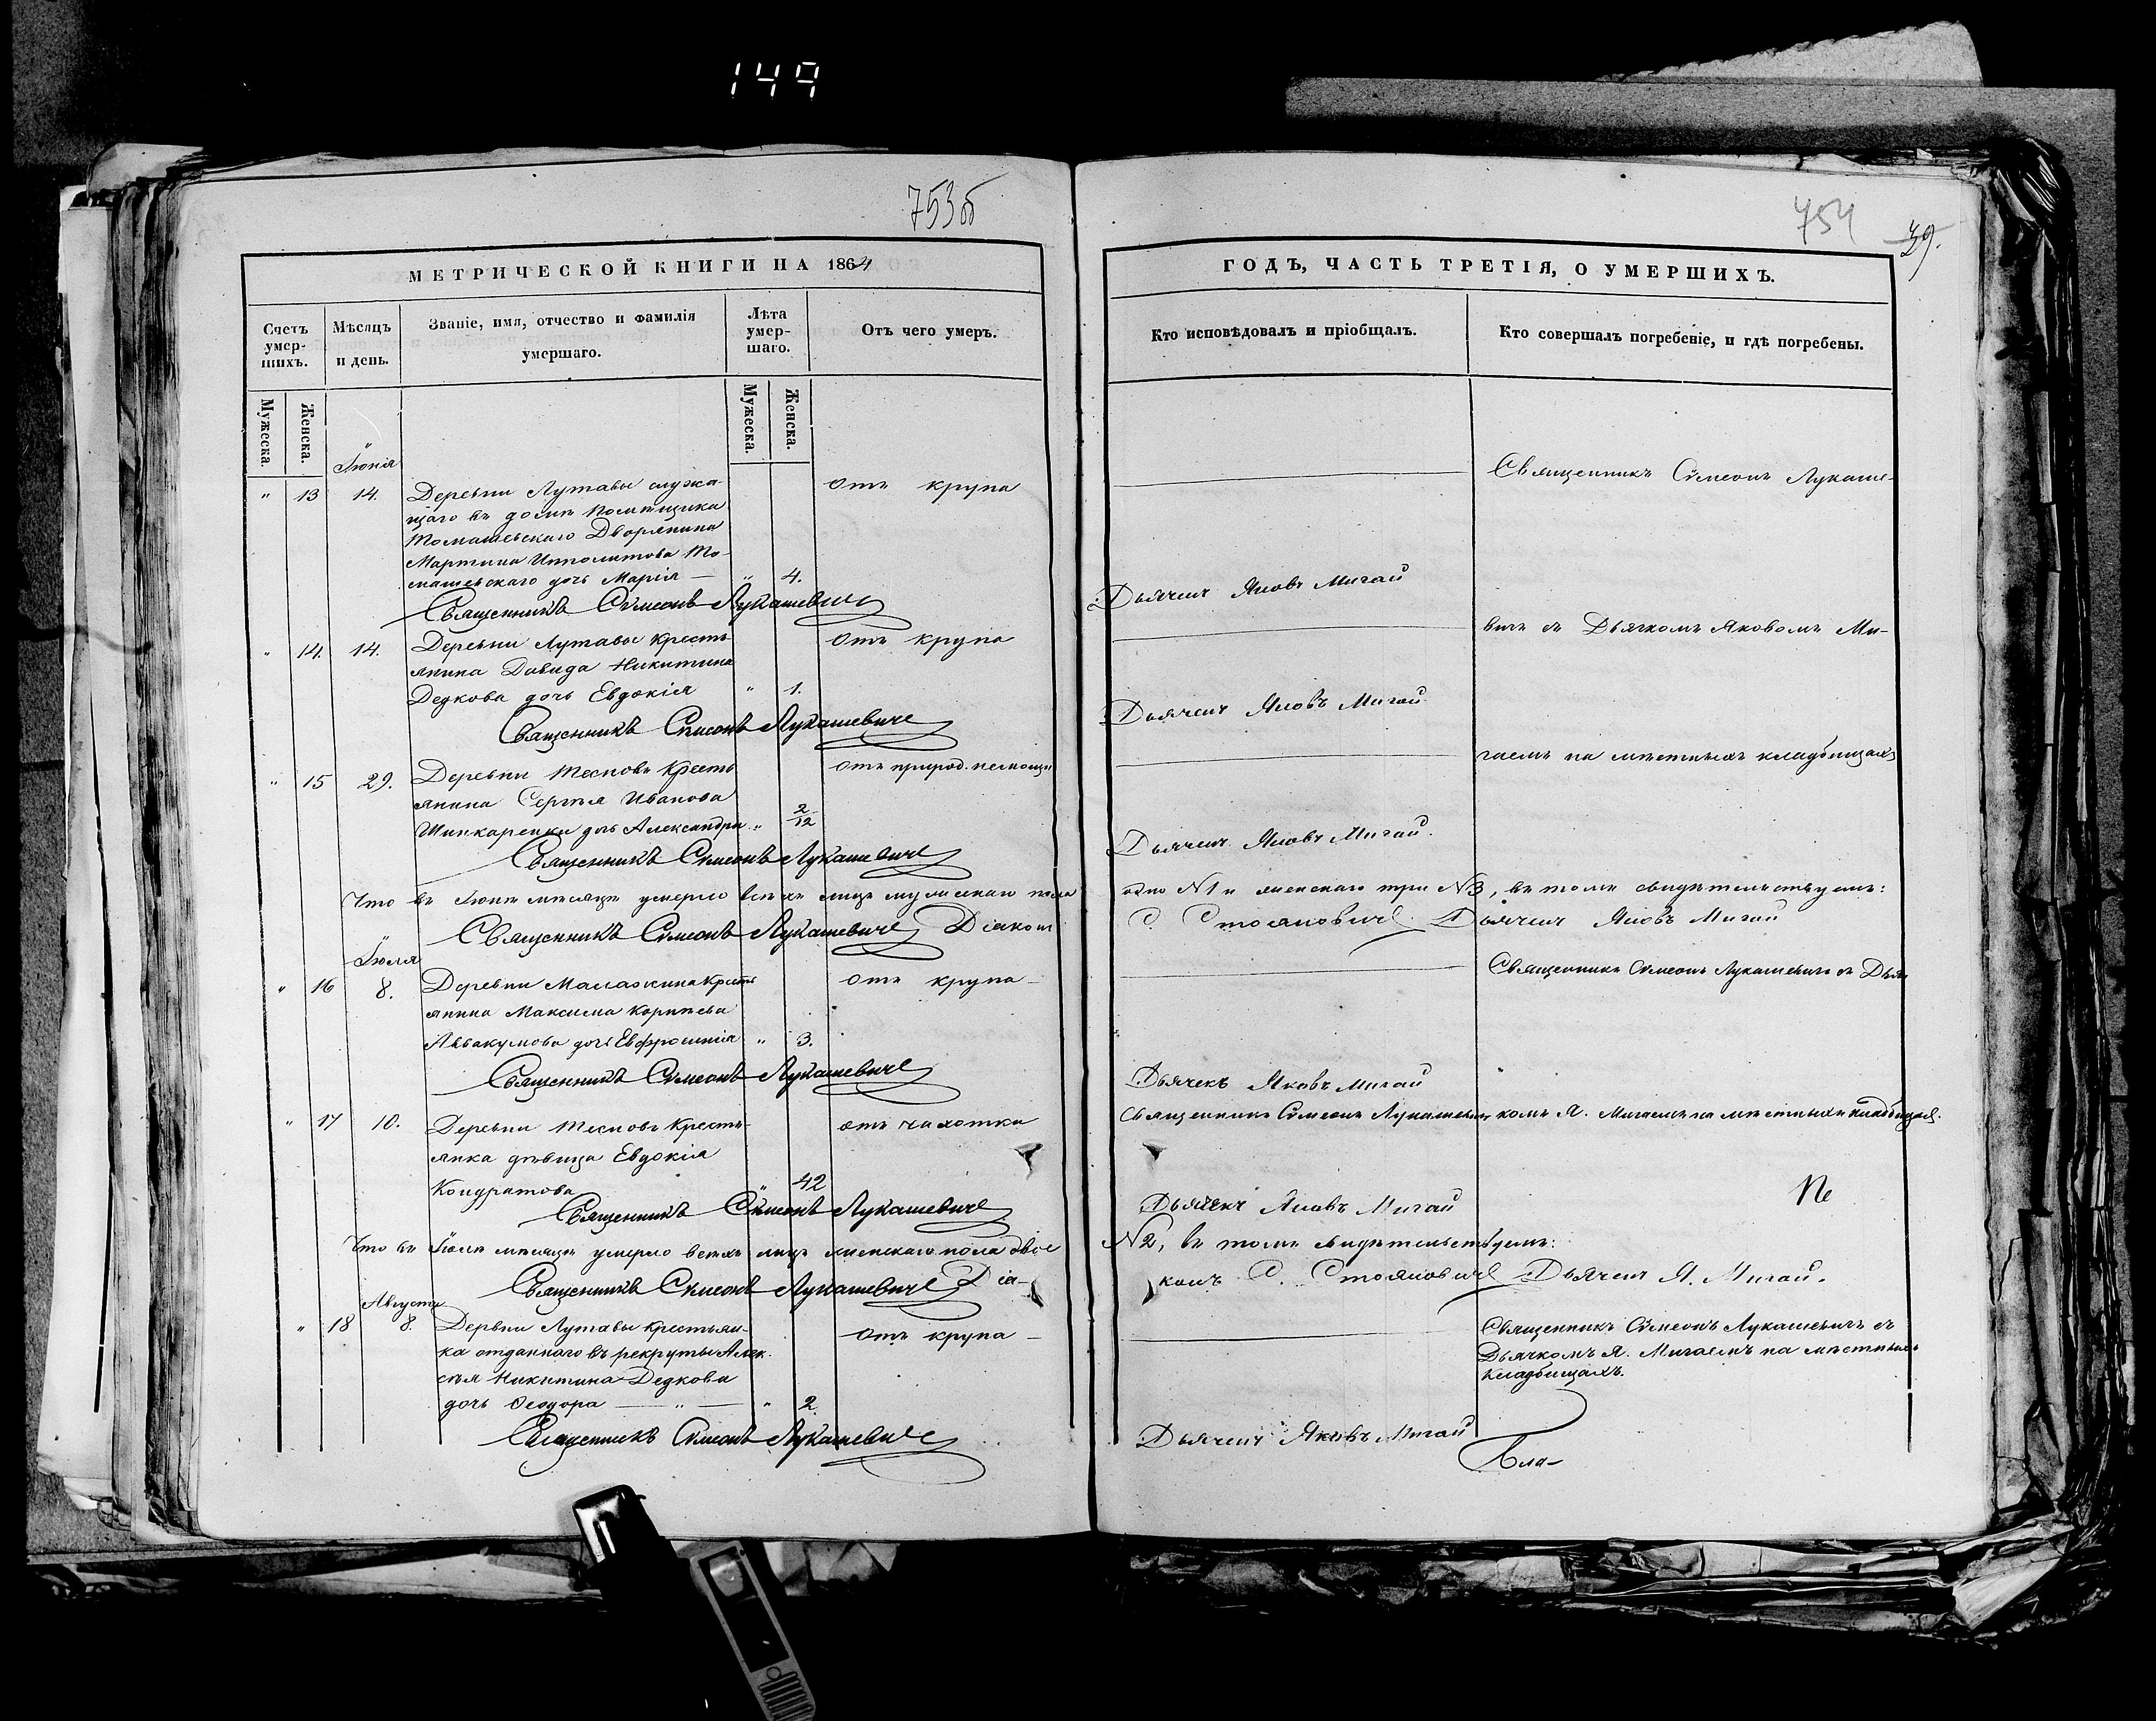 149
753об
754
39.
МЕТРИЧЕСКОЙ КНИГИ НА 1864
ГОДЪ, ЧАСТЬ ТРЕТІЯ, О УМЕРШИХЪ.
Счетъ умер-шихъ.
Мѣсяцъ и день.
Званіе, имя, отчество и фамилія умершаго.
Лѣта умер-шаго.
Отъ чего умеръ.
Кто исповѣдовалъ и пріобщалъ.
Кто совершалъ погребеніе, и гдѣ погребены.
Мужеска.
Женска.
Мужеска.
Женска.
Іюнія
" 13 14. Деревни Лутавы служа- отъ крупа
щаго въ домѣ помѣщика
Томашевскаго Дворянина
Мартина Ипполитова То-
машевскаго дочь Марія — " 4.
Священникъ Сѵмеонъ Лукашевичъ
" 14. 14. Деревни Лутавы кресть- отъ крупа
янина Давида Никитина
Дедкова дочь Евдокія " 1.
Священникъ Сѵмеонъ Лукашевичъ
" 15 29. Деревни Тесновъ кресть отъ природ. немощи
янина Сергѣя Иванова
Шинкаренки дочь Александра " 2/12
Священникъ Сѵмеонъ Лукашевичъ
Что въ Іюнѣ мѣсяцѣ умерло всѣхъ лицъ мужескаго пола
Священникъ Сѵмеонъ Лукашевичъ Діаконъ
Іюля
" 16 8. Деревни Малаокина кресть отъ крупа
янина Максима Корнѣева
Аввакумова дочь Евфросинія " 3.
Священникъ Сѵмеонъ Лукашевичъ
" 17 10. Деревни Тесновъ кресть- отъ чахотки
янка дѣвица Евдокія
Кондратова " 42
Священникъ Сѵмеонъ Лукашевичъ
Что въ Іюлѣ мѣсяцѣ умерло всѣхъ лицъ женскаго пола двое
Священникъ Сѵмеонъ Лукашевичъ Діа-
Августа
" 18 8. Дервни Лутавы крестьян- отъ крупа
ка отданного въ рекруты Алек-
сѣя Никитина Дедкова
дочь Ѳеодора — " — " 2
Священникъ Сѵмеонъ Лукашевичъ
Священникъ Сѵмеонъ Лукаше-
Дьячекъ Яковъ Мигай
вичъ съ Дьячкомъ Яковомъ Ми-
Дьячекъ Яковъ Мигай
гаемъ на мѣстныхъ кладбищахъ
Дьячекъ Яковъ Мигай.
одно №1 и женскаго три №3, въ томъ свидѣтельствуемъ:
С. Стояновичъ Дьячекъ Яковъ Мигай
Священникъ Сѵмеонъ Лукашевичъ съ Дьяч
Дьячекъ Яковъ Мигай
Священникъ Сѵмеонъ Лукашевичъ комъ Я. Мигаемъ на мѣстныхъ кладбищахъ.
Дьячекъ Яковъ Мигай
№2, въ томъ свидѣтельствуемъ:
конъ С. Стояновичъ Дьячекъ Я. Мигай.
Священникъ Сѵмеонъ Лукашевичъ съ
Дьячкомъ Я. Мигаемъ на мѣстныхъ
кладбищахъ.
Дьячекъ Яковъ Мигай
Бла-